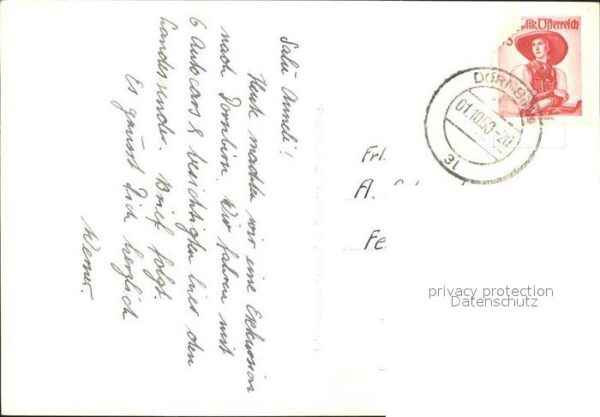 Salü Anneli!
Heute machten wir eine Exkursion
nach Dornbirn. Wir fahren mit
6 Autocars & besichtigten hier den
Landessender. Brief folgt.
Es grüsst Dich herzlich
Werner.
blik Österreich
DORNBIRN
01.10.50-20
31
Frl.
A.
Fe
privacy protection
Datenschutz